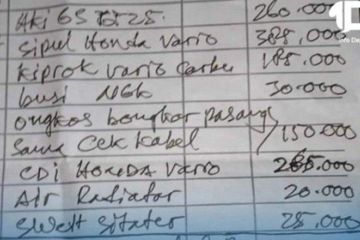 Aki GS 260.000
sipul Honda vario 385.000
kiprok vario Carbu 185.000
busi NGK 30.000
ongkos bongkar pasang
sama Cek kabel 150.000
CDI HONDA Vario 265.000
Air Radiator 20.000
Sweth Sitater 25.000